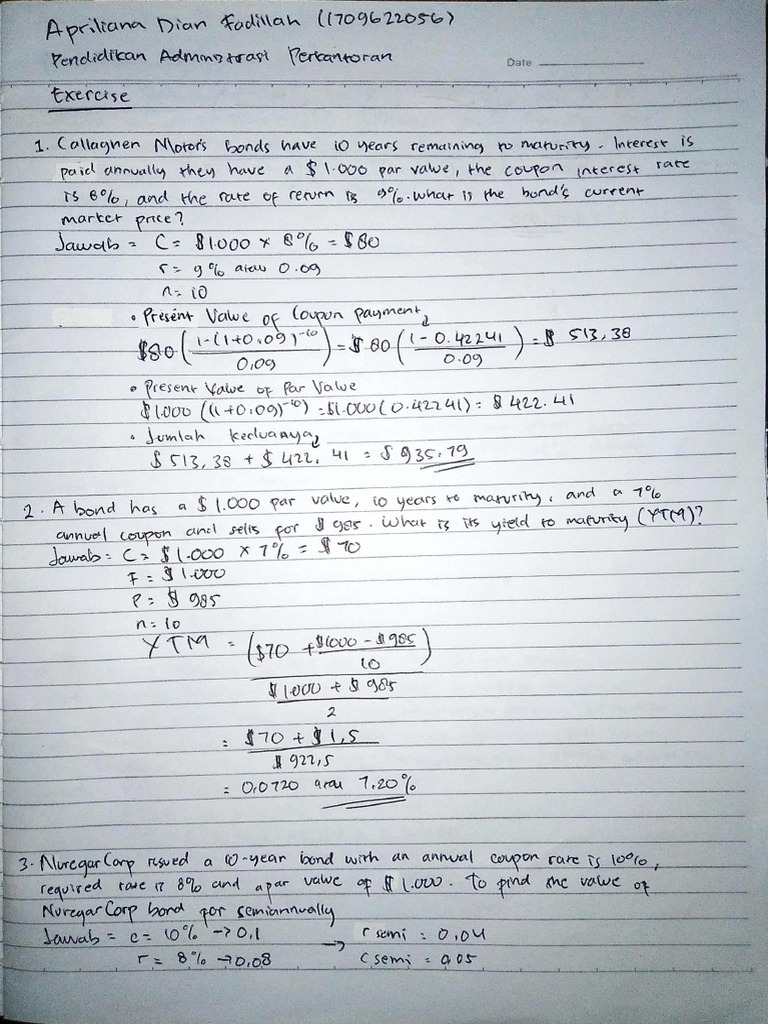 Apriliana Dian Fadillah (1709622056)
Pendidikan Administrasi Perkantoran
Date
Exercise
1. Callaghen Motor's bonds have 10 years remaining to maturity. Interest is
paid annually they have a $ 1.000 par value, the coupon interest rate
is 8%, and the rate of return is 9%. what is the bond's current
market price?
Jawab = C = $1.000 x 8% = $80
r = 9% atau 0.09
n = 10
• Present Value of Coupon payment
$80 ( 1-(1+0,09)^-10 / 0,09 ) = $ 80 ( 1 - 0.42241 / 0.09 ) = $ 513,38
• Present Value of Par Value
$1.000 ((1+0,09)^-10) = $1.000 (0.42241) = $ 422.41
• Jumlah keduanya
$ 513,38 + $ 422,41 = $ 935.79
2. A bond has a $ 1.000 par value, 10 years to maturity, and a 7%
annual coupon and sells for $ 985. What is its yield to maturity (YTM)?
Jawab = C = $ 1.000 x 7% = $ 70
F = $ 1.000
P = $ 985
n = 10
YTM = ($70 + $1000 - $ 985 / 10)
$ 1.000 + $ 985
2
= $ 70 + $ 1,5
$ 922,5
= 0,0720 atau 7.20%
3. NuregarCorp issued a 10-year bond with an annual coupon rate is 10%,
required rate is 8% and a par value of $ 1.000. To find the value of
NuregarCorp bond for semiannually
Jawab = c = 10% → 0,1 → r semi = 0,04
r = 8% → 0,08 C semi = 0,05